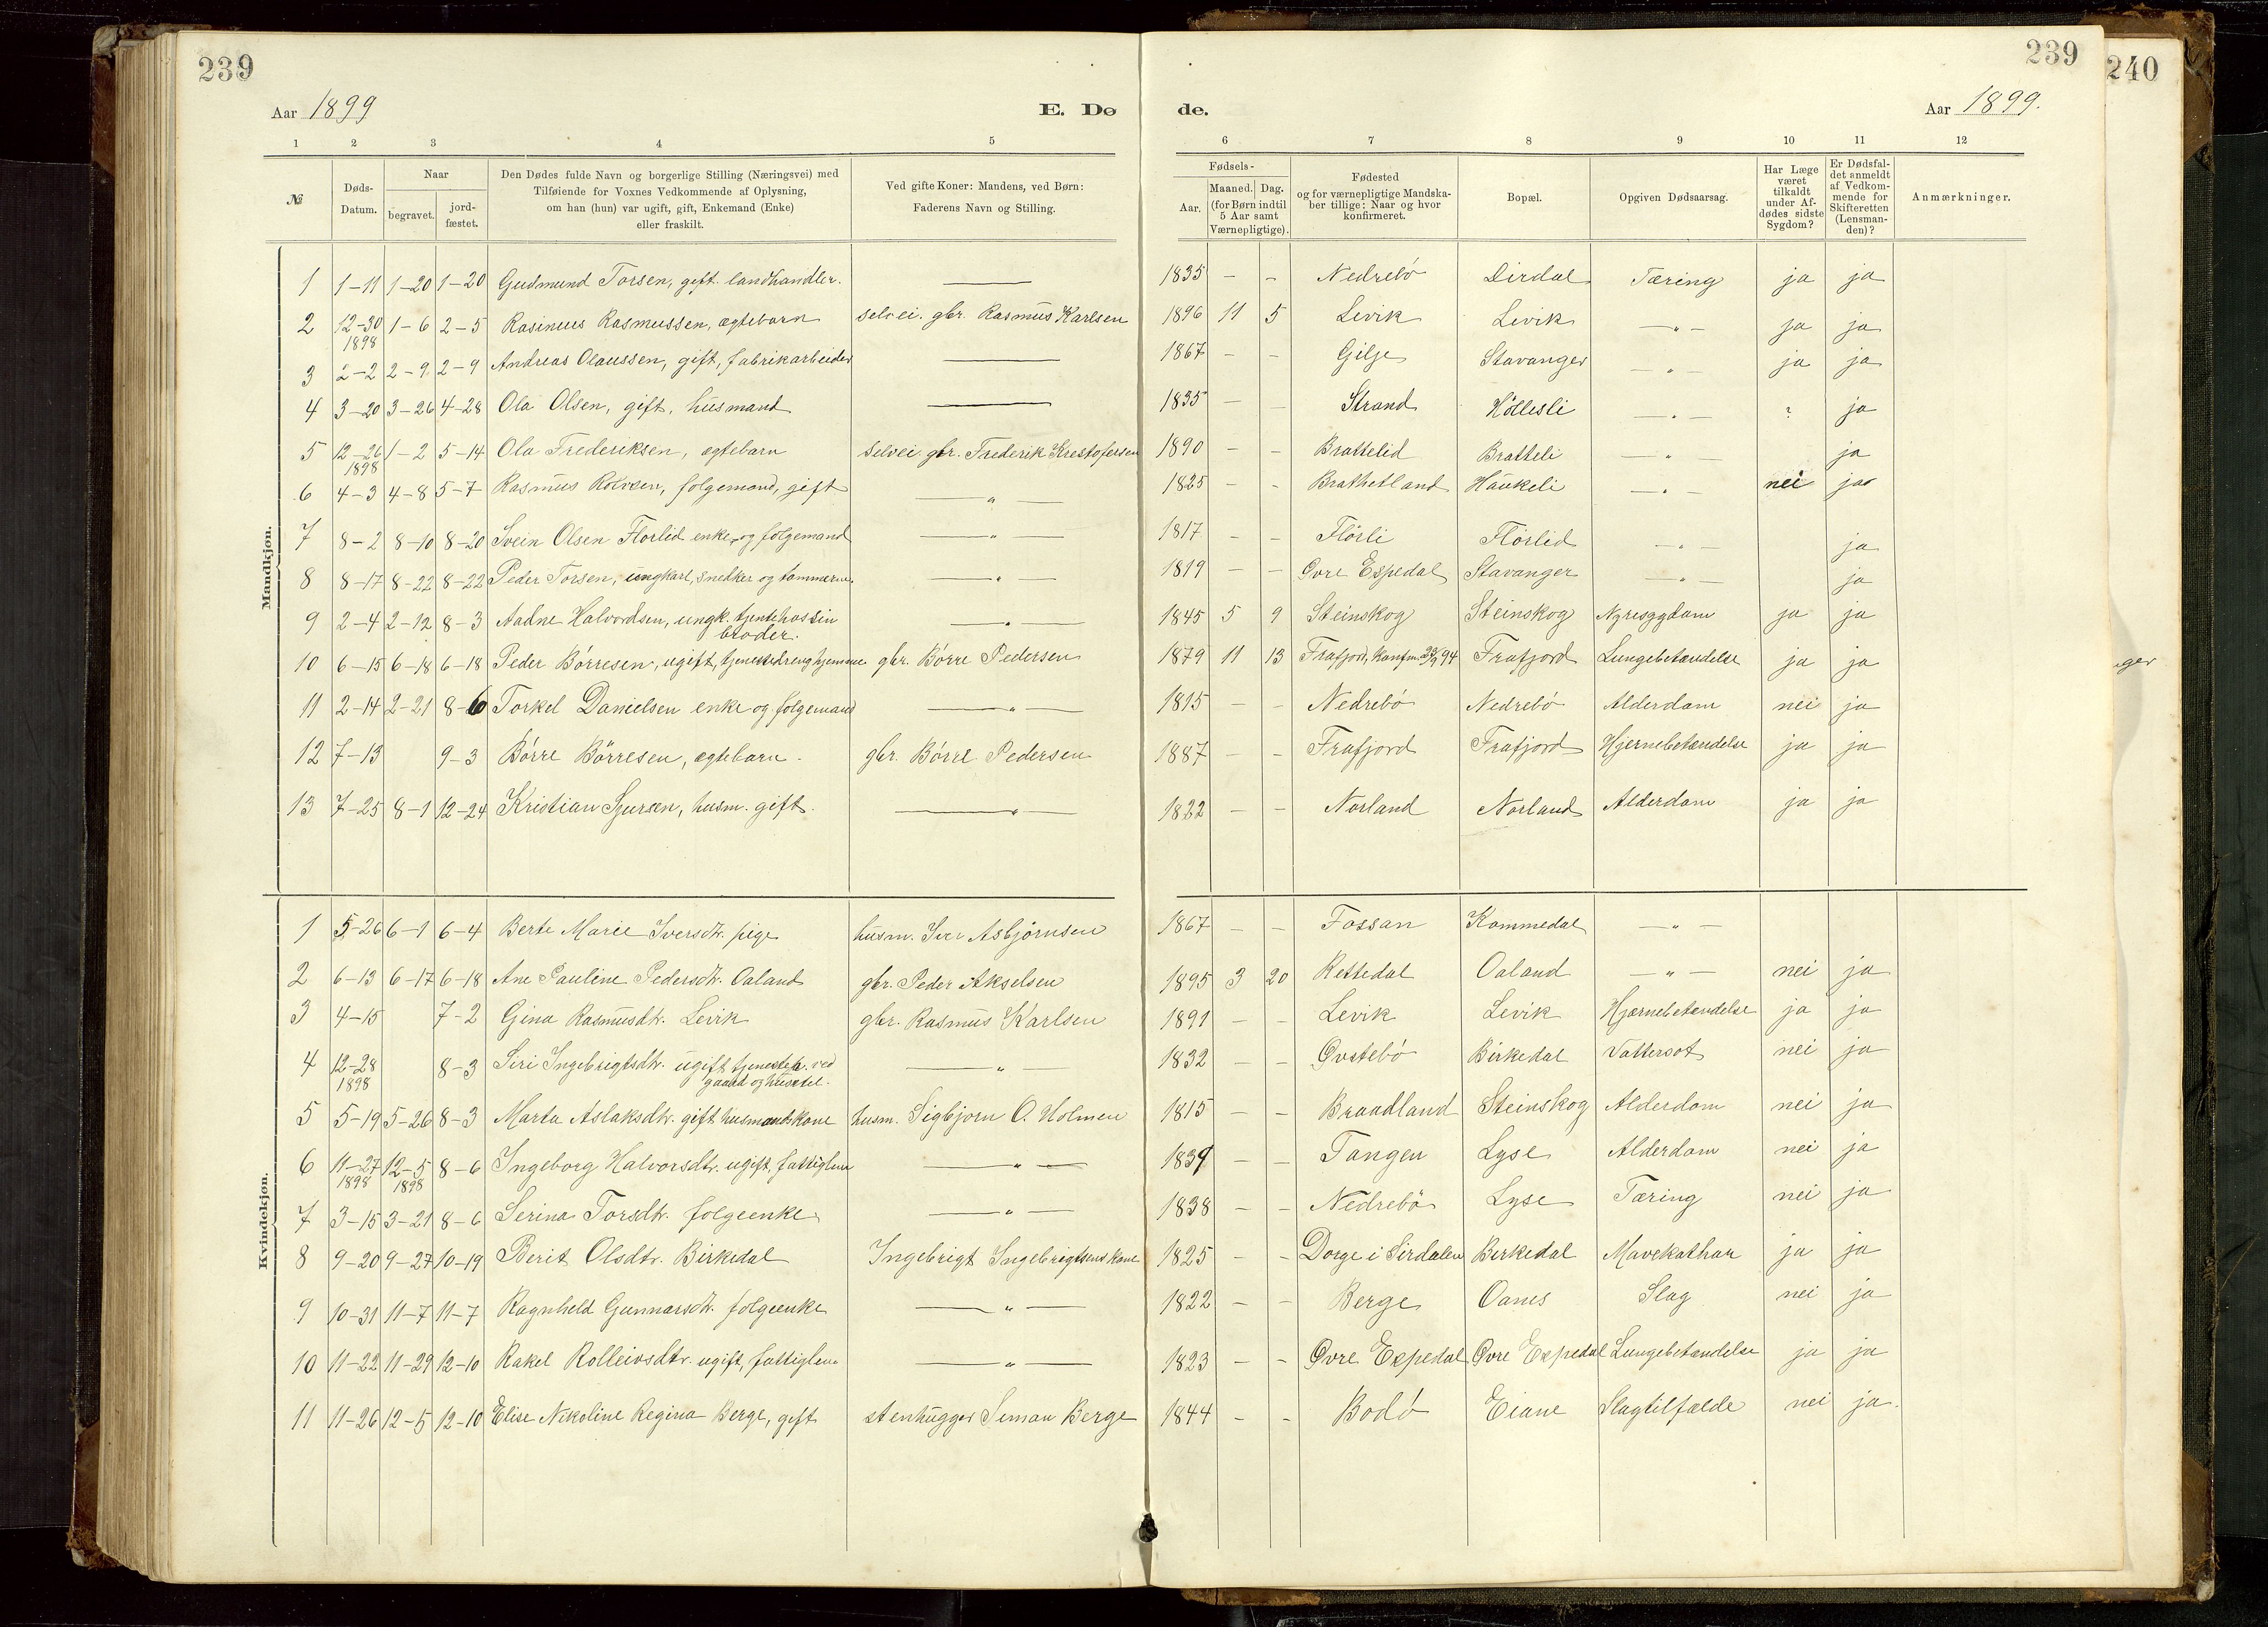 239
239
240
Aar 1899
E. Dø
de.
Aar 1899.
1 2 3 4 5 6 7 8 9 10 11 12
№
Døds-Datum.
Naar
begravet.
jord-fæstet.
Den Dødes fulde Navn og borgerlige Stilling (Næringsvei) med
Tilføiende for Voxnes Vedkommende af Oplysning,
om han (hun) var ugift, gift, Enkemand (Enke)
eller fraskilt.
Ved gifte Koner: Mandens, ved Børn:
Faderens Navn og Stilling.
Fødsels-
Aar.
Maaned. Dag.
(for Børn indtil
5 Aar samt
Værnepligtige).
Fødested
og for værnepligtige Mandska-
ber tillige: Naar og hvor
konfirmeret.
Bopæl.
Opgiven Dødsaarsag.
Har Læge
været
tilkaldt
under Af-
dødes sidste
Sygdom?
Er Dødsfal-
det anmeldt
af Vedkom-
mende for
Skifteretten
(Lensman-
den)?
Anmærkninger.
Mandkjøn.
1 1–11 1–20 1–20 Gudmund Torsen, gift. landhandler. — 1835 – – Nedrebö Dirdal Tæring ja ja
2 12–30 1898 1–6 2–5 Rasinius Rasmussen, ægtebarn selvei. gbr. Rasmus Karlsen 1896 11 5 Levik Levik —„— ja ja
3 2–2 2–9 2–9 Andreas Olaussen, gift, fabrikarbeider — 1867 – – Gilje Stavanger —„— ja ja
4 3–20 3–26 4–28 Ola Olsen, gift, husmand — 1835 – – Strand Höllesli —„— ? ja
5 12–26 1898 1–2 5–14 Ola Frederiksen, ægtebarn selvei. gbr. Frederik Krestofersen 1890 – – Brattelid Bratteli —„— ja
6 4–3 4–8 5–7 Rasmus Rolvsen, folgemand, gift —„— 1825 – – Brathetland Haukeli —„— nei ja
7 8–2 8–10 8–20 Svein Olsen Florlid enke og folgemand —„— 1817 – – Flörli Flörlid —„— ja
8 8–17 8–22 8–22 Peder Torsen, ungkarl, snedker og tommerm. —„— 1819 – – Övre Espedal Stavanger —„— ja
9 2–4 2–12 8–3 Aadne Halvordsen, ungk. tjente hos sin broder. —„— 1845 5 9 Steinskog Steinskog Nyresygdom ja ja
10 6–15 6–18 6–18 Peder Börresen, ugift, tjenestedreng hjemme gbr. Börre Pedersen 1879 11 13 Frafjord, konfm. 23/9 94 Frafjord Lungebetændelse ja ja
11 2–14 2–21 8–6 Torkel Danielsen enke og folgemand —„— 1815 – – Nedrebö Nedrebö Alderdom nei ja
12 7–13 9–3 Börre Börresen, ægtebarn. gbr. Börre Pedersen 1887 – Frafjord Frafjord Hjernebetændelse ja ja
13 7–25 8–1 12–24 Kristian Sjursen, husm. gift. —„— 1822 – – Norland Norland Alderdom ja ja
Kvindekjøn.
1 5–26 6–1 6–4 Berte Marie Iversdtr. pige husm. Iver Asbjörnsen 1867 – – Fossan Kommedal —„—
2 6–13 6–17 6–18 Ane Pauline Pedersdtr. Oaland gbr. Peder Akselsen 1895 3 20 Rettedal Oaland —„— nei ja
3 4–15 7–2 Gina Rasmusdtr. Levik gbr. Rasmus Karlsen 1891 – – Levik Levik Hjærnebetændelse ja ja
4 12–28 1898 8–3 Siri Ingebrigtsdtr. ugift ved gaard og —„— 1832 – – Övstebö Birkedal Vattersot nei ja
5 5–19 5–26 8–3 Marta Aslaksdtr. gift husmandskone husm. Sigbjorn O. Holmen 1815 – – Braadland Steinskog Alderdom nei ja
6 11–27 1898 12–5 1898 8–6 Ingeborg Halvorsdtr. ugift, fattiglem —„— 1839 – – Tangen Lyse Alderdom nei ja
7 3–15 3–21 8–6 Serina Torsdtr. folgeenke —„— 1838 – – Nedrebö Lyse Tæring nei ja
8 9–20 9–27 10–19 Berit Olsdtr. Birkedal Ingebrigt Ingebrigtsens kone 1825 – – Dorge i Sirdalen Birkedal Mavekathar ja ja
9 10–31 11–7 11–7 Ragnheld Gunnarsdtr. folgeenke —„— 1822 – – Berge Oanes Slag nei ja
10 11–22 11–29 12–10 Rakel Rolleivsdtr. ugift, fattiglem —„— 1823 – – Övre Espedal Övre Espedal Lungebetændelse ja ja
11 11–26 12–5 12–10 Elise Nikoline Regina Berge, gift stenhugger Simon Berge 1844 – – Bodö Eiane Slagtilfælde nei ja.